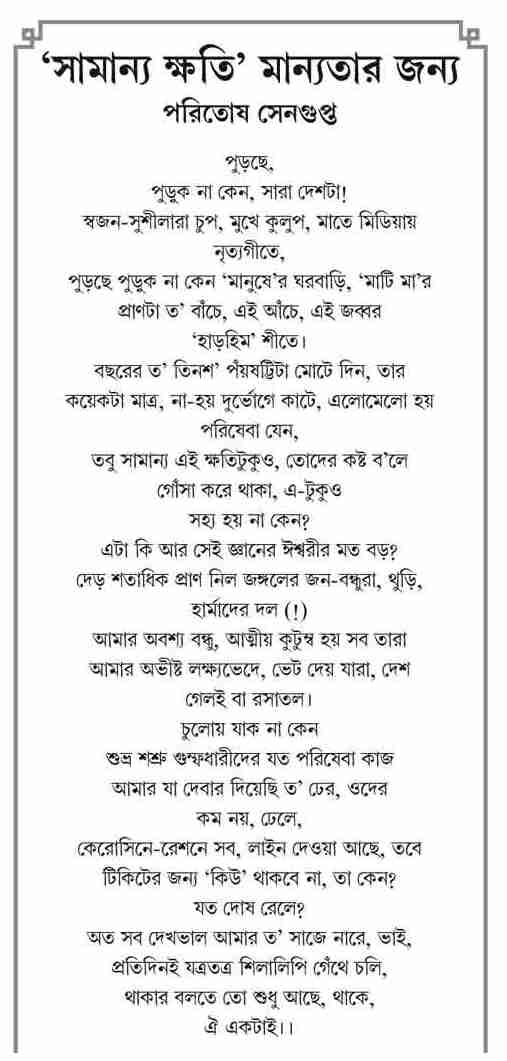 ‘সামান্য ক্ষতি’ মান্যতার জন্য
পরিতোষ সেনগুপ্ত
পুড়ছে,
পুড়ুক না কেন, সারা দেশটা!
স্বজন-সুশীলারা চুপ, মুখে কুলুপ, মাতে মিডিয়ায়
নৃত্যগীতে,
পুড়ছে পুড়ুক না কেন ‘মানুষে’র ঘরবাড়ি, ‘মাটি মা’র
প্রাণটা ত’ বাঁচে, এই আঁচে, এই জব্বর
‘হাড়হিম’ শীতে।
বছরের ত’ তিনশ’ পঁয়ষট্টিটা মোটে দিন, তার
কয়েকটা মাত্র, না-হয় দুর্ভোগে কাটে, এলোমেলো হয়
পরিষেবা যেন,
তবু সামান্য এই ক্ষতিটুকুও, তোদের কষ্ট ব’লে
গোঁসা করে থাকা, এ-টুকুও
সহ্য হয় না কেন?
এটা কি আর সেই জ্ঞানের ঈশ্বরীর মত বড়?
দেড় শতাধিক প্রাণ নিল জঙ্গলের জন-বন্ধুরা, থুড়ি,
হার্মাদের দল (!)
আমার অবশ্য বন্ধু, আত্মীয় কুটুম্ব হয় সব তারা
আমার অভীষ্ট লক্ষ্যভেদে, ভেট দেয় যারা, দেশ
গেলই বা রসাতল।
চুলোয় যাক না কেন
শুভ্র শশ্রু গুম্ফধারীদের যত পরিষেবা কাজ
আমার যা দেবার দিয়েছি ত’ ঢের, ওদের
কম নয়, ঢেলে,
কেরোসিনে-রেশনে সব, লাইন দেওয়া আছে, তবে
টিকিটের জন্য ‘কিউ’ থাকবে না, তা কেন?
যত দোষ রেলে?
অত সব দেখভাল আমার ত’ সাজে নারে, ভাই,
প্রতিদিনই যত্রতত্র শিলালিপি গেঁথে চলি,
থাকার বলতে তো শুধু আছে, থাকে,
ঐ একটাই।।